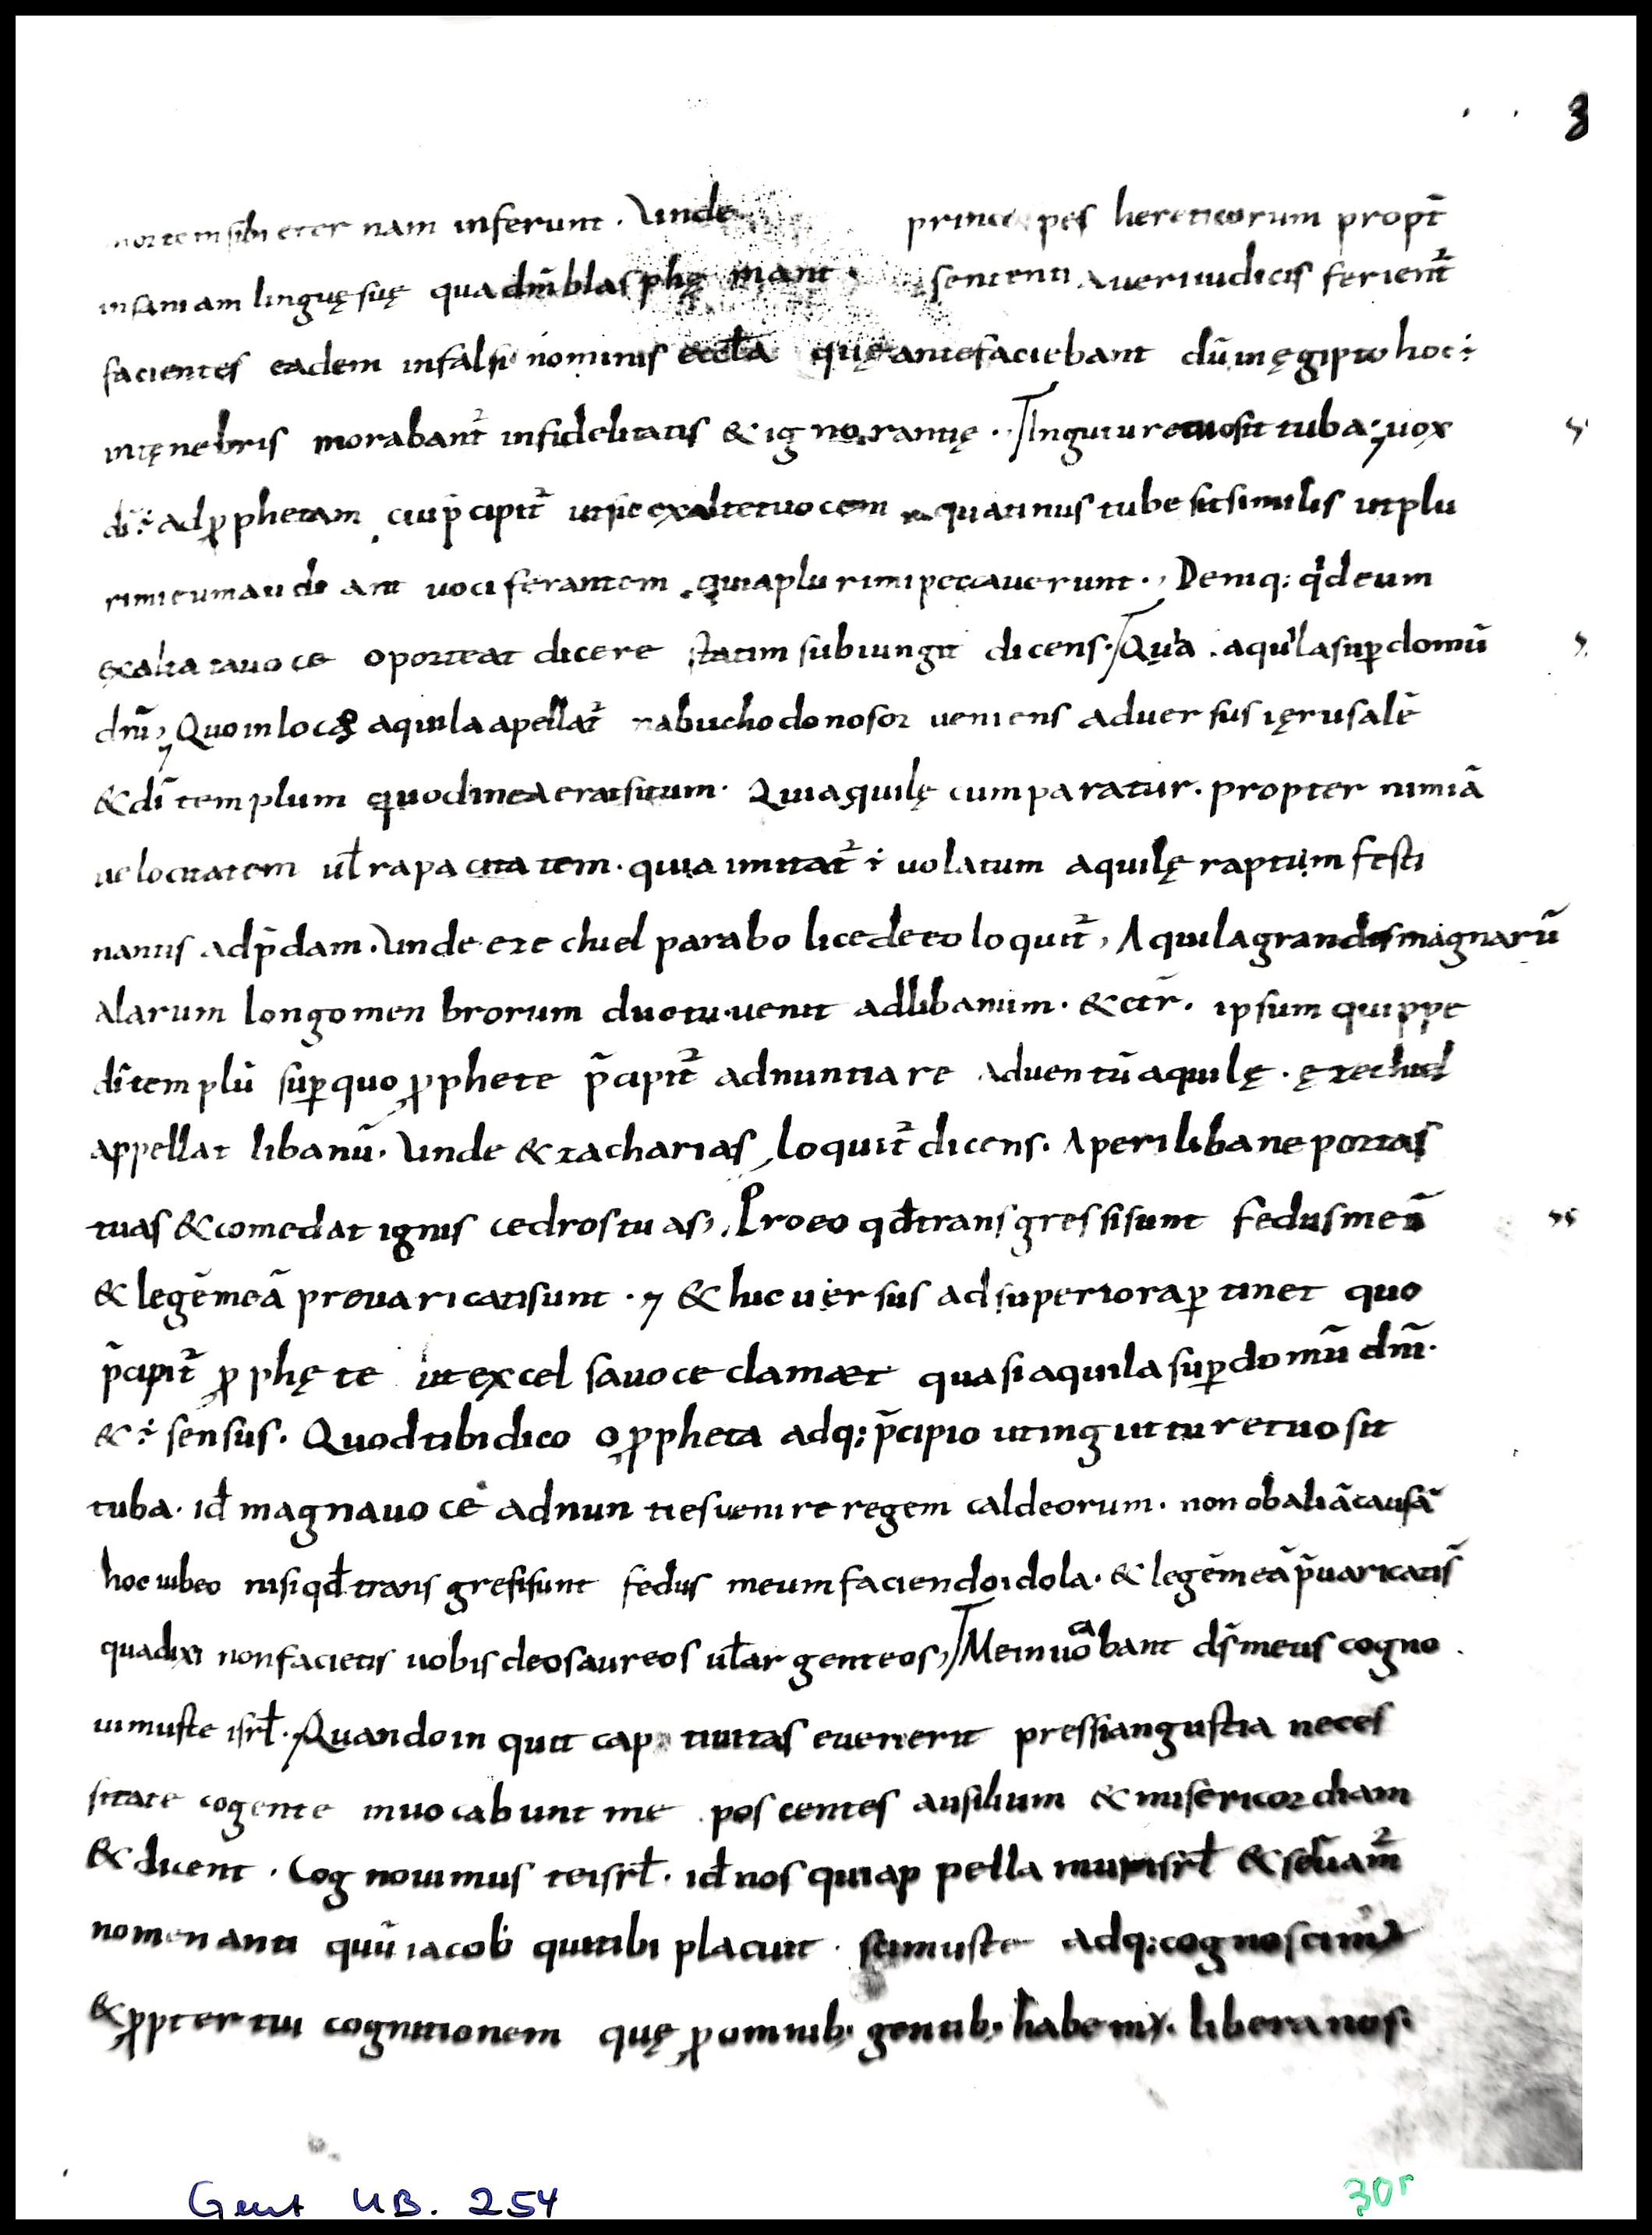 3
mortem sibi eternam inferunt. Unde principes hereticorum propt̃
insaniam linguę suę qua dñm blasphęmant. sententia veri iudicis ferient᷑
facientes eadem in falsi nominis eccła quę ante faciebant dũ in ęgipto hoc ÷
in tęnebris morabant᷑ infidelitatis & ignorantię. In guture tuo sit tuba; uox
dĩ ÷ ad ꝓphetam cui p̃cipit᷑ ut sic exaltet uocem quatinus tube sit similis ut plu
rimi eum audiant uociferantem quia plurimi peccauerunt. Deniq; qid eum
exaltata uoce oporteat dicere statim subiungit dicens. Quasi aquila suꝑ domũ
dñi; Quo in loco aquila apellat᷑ nabuchodonosor ueniens aduersus ięrusalẽ
& dĩ templum quod in ea erat situm. Qui aquilę cumparatur. propter nimiã
uelocitatem uł rapacitatem. quia imitat᷑ ÷ uolatum aquilę raptum festi
nantis ad p̃dam. Unde ezechiel parabolice de eo loquit᷑, Aquila grandis magnarũ
alarum longo menbrorum ductu. uenit ad libanum. & cetr̃. ipsum quippe
dĩ templũ suꝑ quo ꝓphete p̃cipit᷑ adnuntiare aduentũ aquilę. ęzechiel
appellat libanũ. Unde & zacharias loquit᷑ dicens. Aperi libane portas
tuas & comedat ignis cedros tuas, Pro eo qđ transgressi sunt fedus meũ
& legẽ meã preuaricati sunt. & hic uersus ad superiora ꝑtinet quo
p̃cipit᷑ ꝓphęte ut excelsa uoce clamaet quasi aquila suꝑ domũ dñi.
& ÷ sensus. Quod tibi dico o ꝓpheta adq; p̃cipio ut in gutture tuo sit
tuba. iđ magna uoce adnunties uenire regem caldeorum. non ob aliã causã
hoc iubeo nisi qđ transgresi sunt fedus meum faciendo idola. & legẽ meã p̃uaricatis̃
qua dixi non facietis uobis deos aureos uł argenteos, Me inuocabant ds̃ meus cogno
uimus te isrł. Quando inquit captiuitas euenerit pressi angustia neces
sitate cogente inuocabunt me poscentes ausilium & misericordiam
& dicent. Cognouimus te isrł. iđ nos qui appellamur isrł & seruam᷑
nomen anti quũ iacob qui tibi placuit. scimus te adq; cognoscim᷑
& ꝓpter tui cognitionem quę ꝓ omnib; gentib; habem᷑. libera nos.
Gent UB. 254
30r